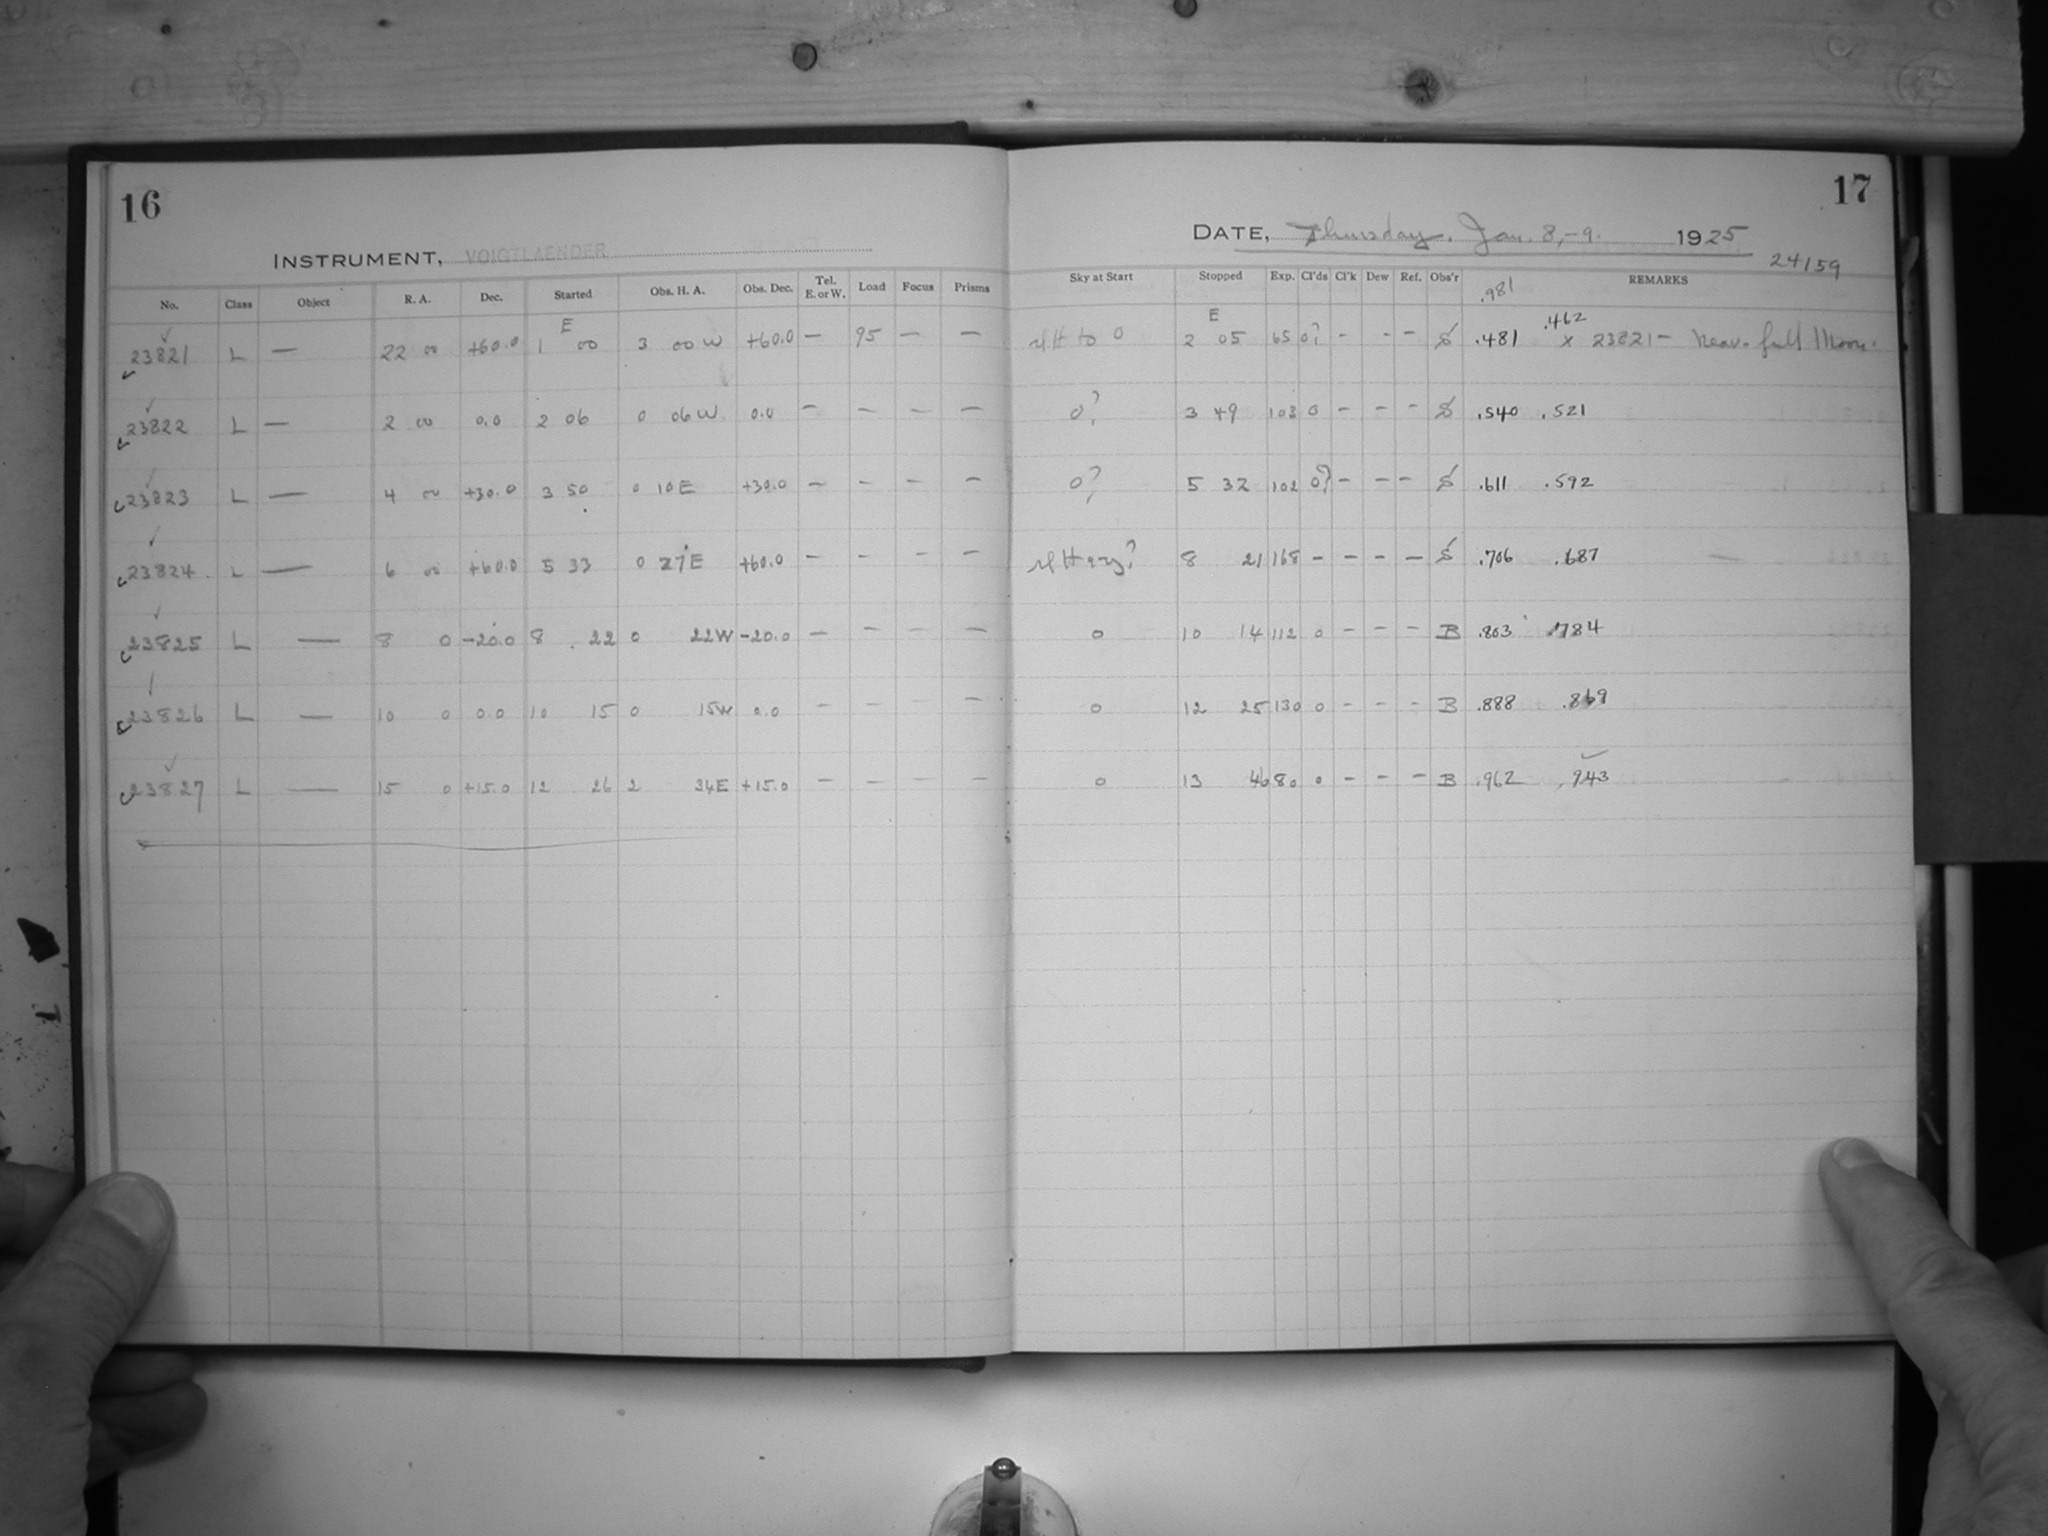 16
INSTRUMENT, VOIGTLAENDER
No. Class Object R. A. Dec. Started Obs. H. A. Obs. Dec. Tel. E. or W. Load Focus Prisms
E
23821 L — 22 00 +60.0 1 00 3 00 W +60.0 — 95 — —
23822 L — 2 00 0.0 2 06 0 06 W 0.0 — — — —
23823 L — 4 00 +30.0 3 50 0 10 E +30.0 — — — —
23824 L — 6 00 +60.0 5 33 0 27 E +60.0 — — — —
23825 L — 8 0 -20.0 8 22 0 22W -20.0 — — — —
23826 L — 10 0 0.0 10 15 0 15W 0.0 — — — —
23827 L — 15 0 +15.0 12 26 2 34E +15.0 — — — —
17
DATE, Thursday, Jan. 8,-9. 1925
24159
Sky at Start Stopped Exp. Cl'ds Cl'k Dew Ref. Obs'r REMARKS
.981
E
to 0 2 05 65 0? - - - S .481 .462 x 23821 - Near full Moon.
0? 3 49 103 0 - - - S .540 .521
0? 5 32 102 0? - - - S .611 .592
8 21 168 - - - - S .706 .687
0 10 14 112 0 - - - B .803 .784
0 12 25 130 0 - - - B .888 .869
0 13 46 80 0 - - - B .962 .943